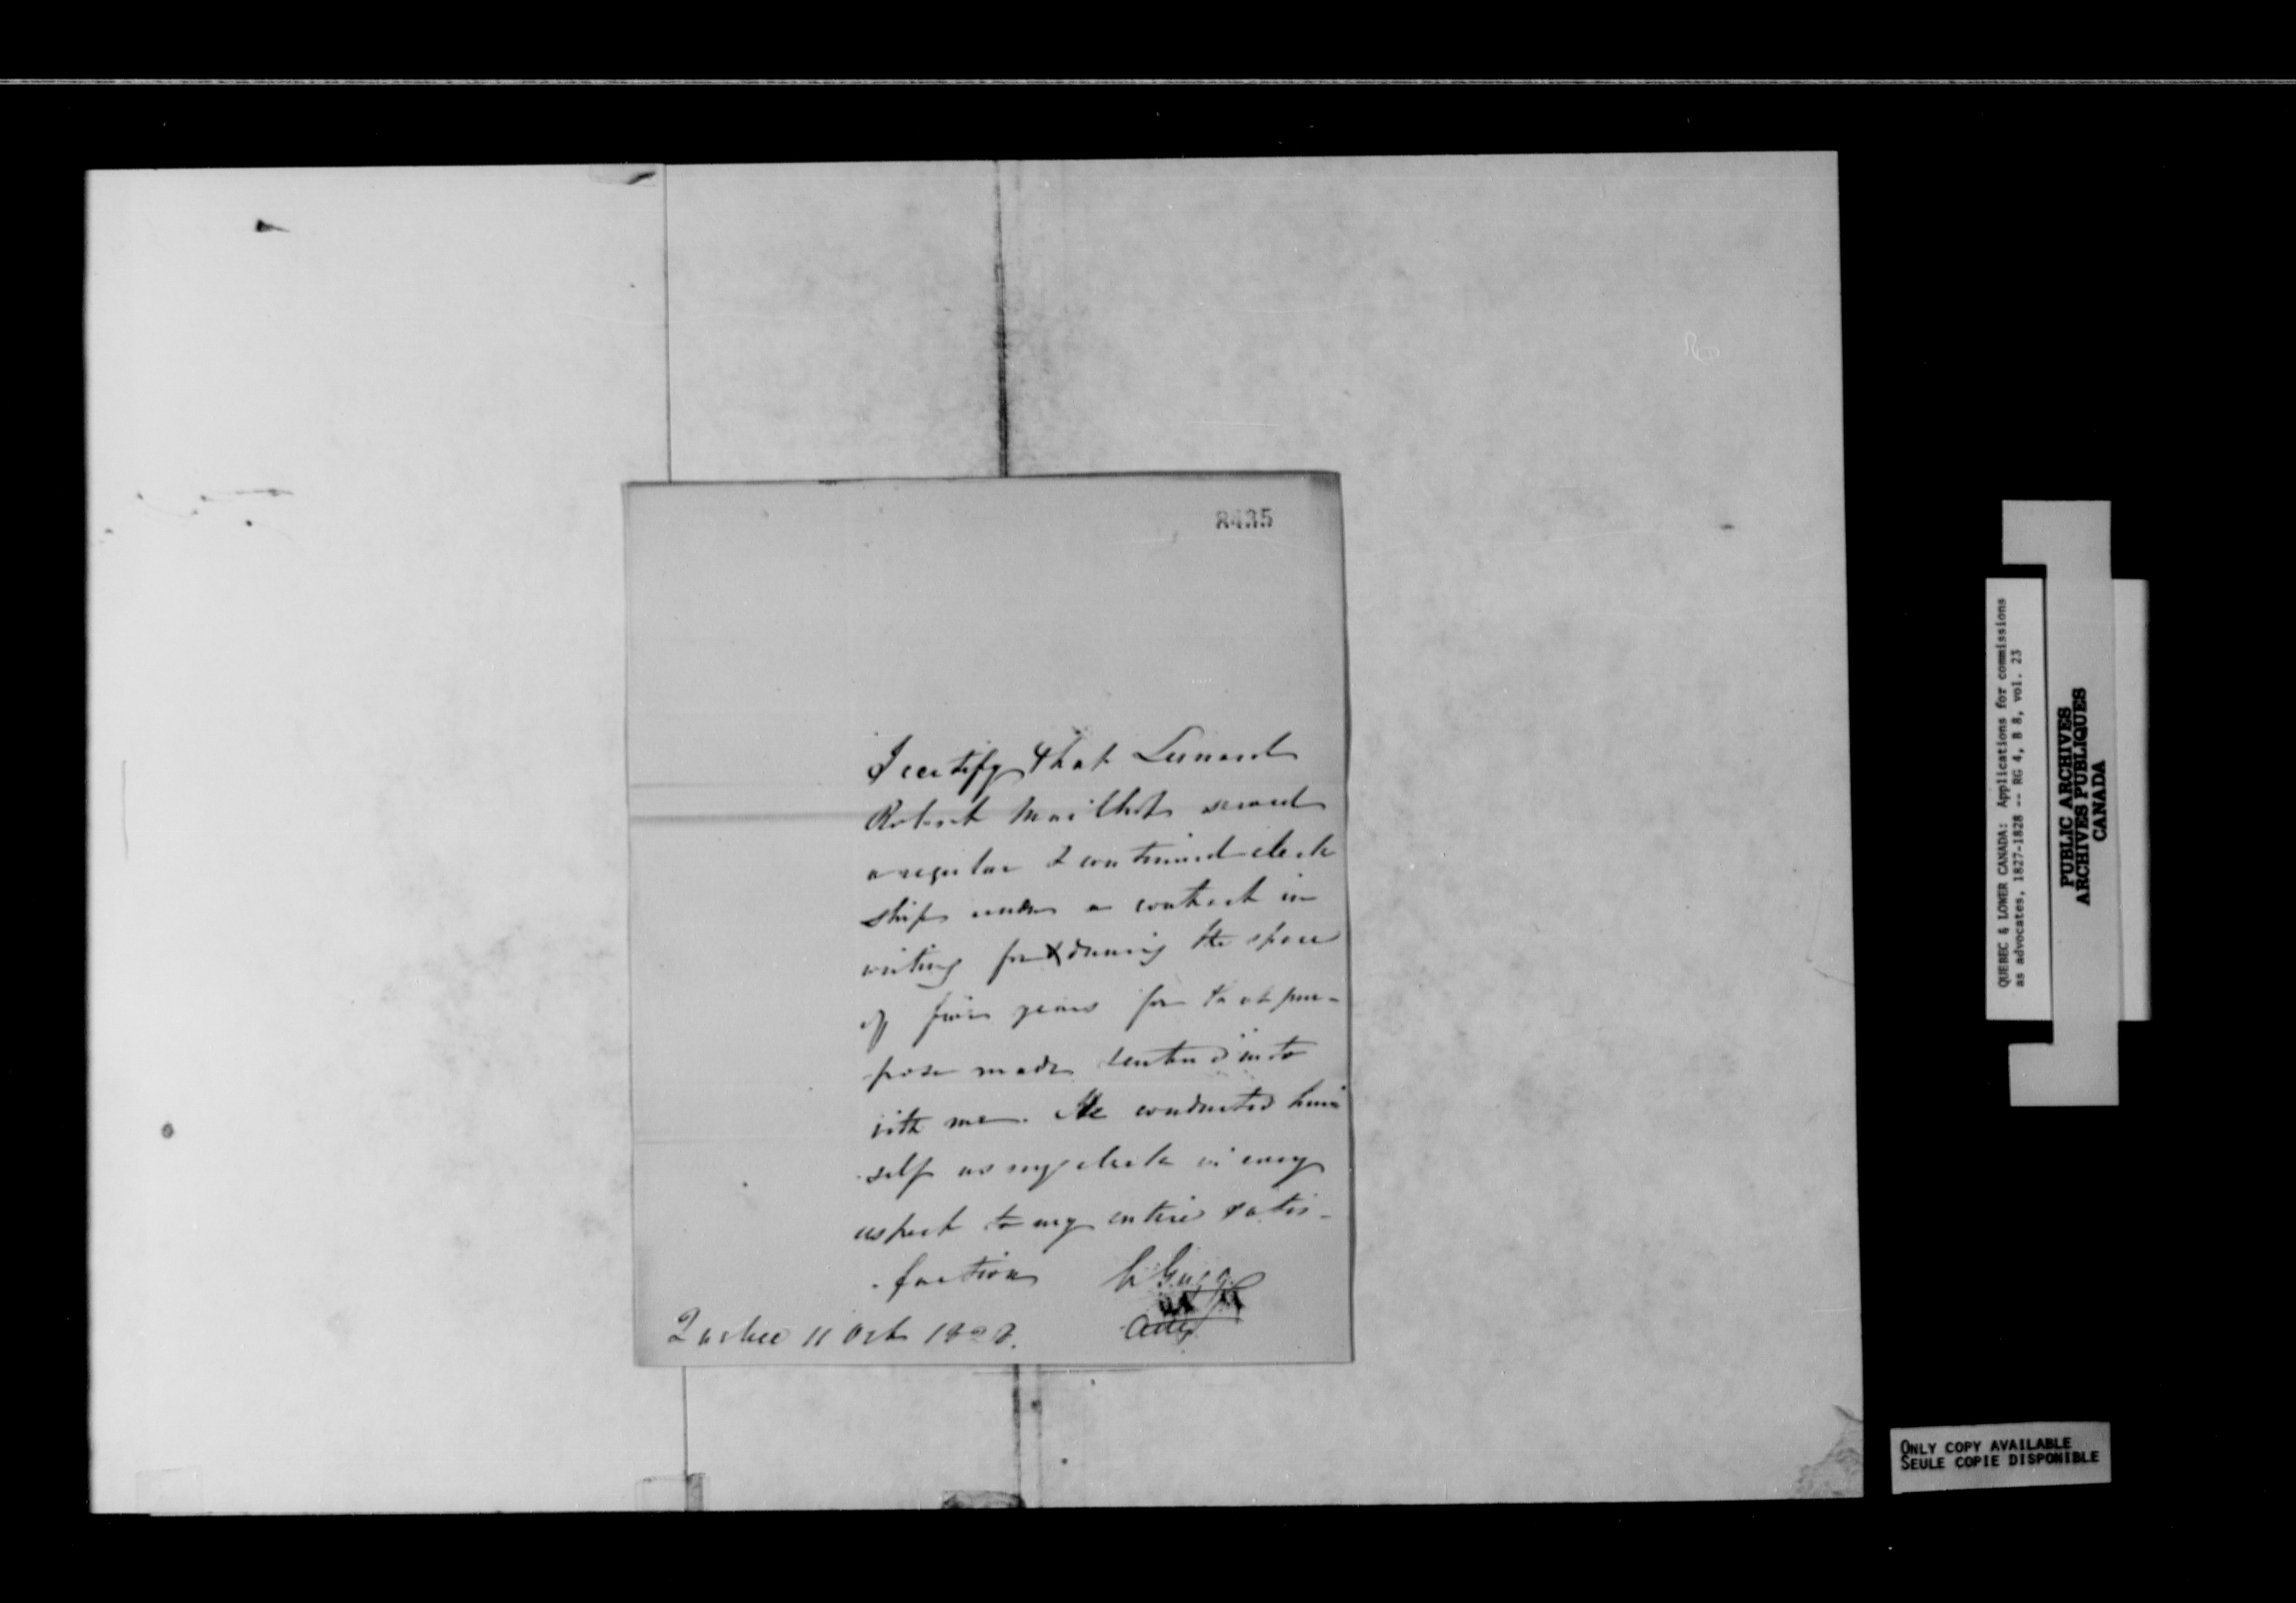 8435
I certify that Leonard
Robert Mailhot served
a regular & continued clerk
ship under a contract in
writing for & during the space
of five years for that pur-
pose made & entered into
with me. He conducted him
self as my clerk in every
respect to my entire satis-
faction
Quebec 11 Oct 1828.
QUEBEC & LOWER CANADA: Applications for commissions
as advocates, 1827-1828 -- RG 4, B 8, vol. 23
PUBLIC ARCHIVES
ARCHIVES PUBLIQUES
CANADA
ONLY COPY AVAILABLE
SEULE COPIE DISPONIBLE